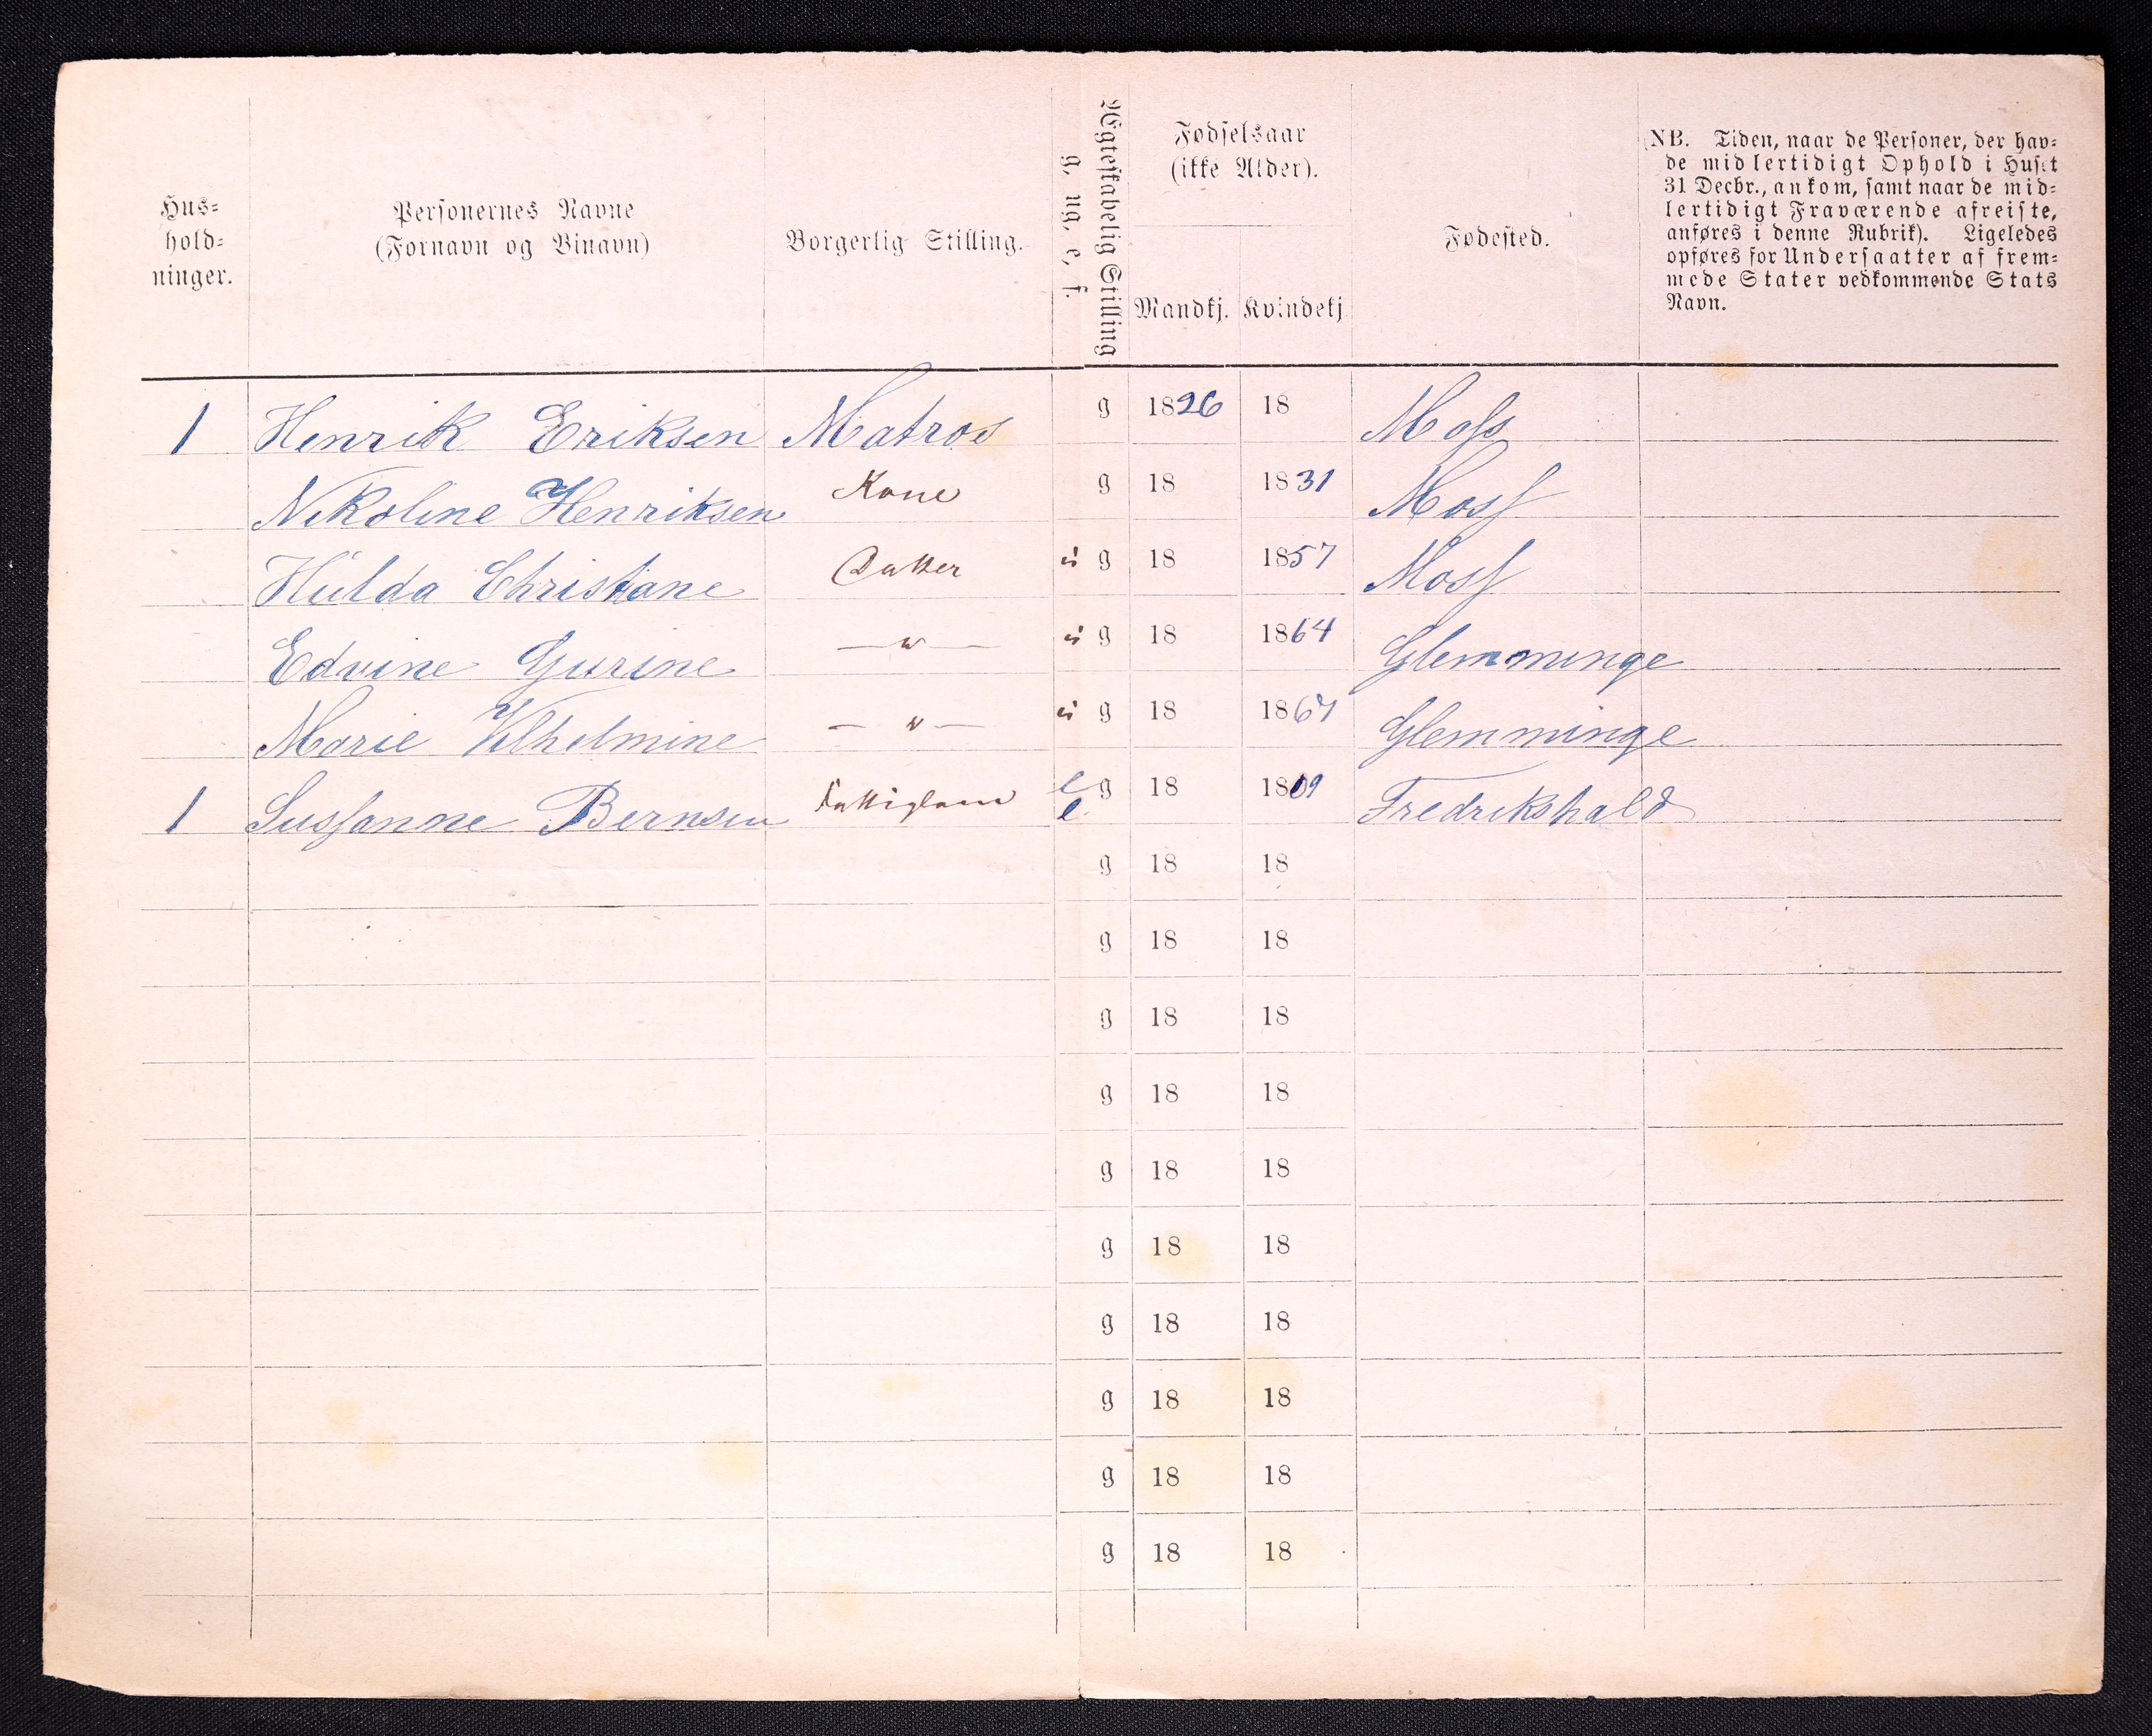 Hus=
hold=
ninger.
Personernes Navne
(Fornavn og Binavn)
Borgerlig Stilling.
Ægteskabelig Stilling
g, ug, e, f.
Fødselsaar
(ikke Alder).
Mandkj. Kvindekj
Fødested.
(NB. Tiden, naar de Personer, der hav=
de midlertidigt Ophold i Huset
31 Decbr., ankom, samt naar de mid=
lertidigt Fraværende afreiste,
anføres i denne Rubrik). Ligeledes
opføres for Undersaatter af frem=
mede Stater vedkommende Stats
Navn.
1 Henrik Eriksen Matros g 1826 18 Moss
Nikoline Henriksen Kone g 18 1831 Moss
Hulda Christiane Datter u g 18 1857 Moss
Edvine Gurine —"— u g 18 1864 Glemminge
Marie Vilhelmine —"— u g 18 1867 Glemminge
1 Sussanne Bernsen Fattiglem e g 18 1809 Fredrikshald
e
g 18 18
g 18 18
g 18 18
g 18 18
g 18 18
g 18 18
g 18 18
g 18 18
g 18 18
g 18 18